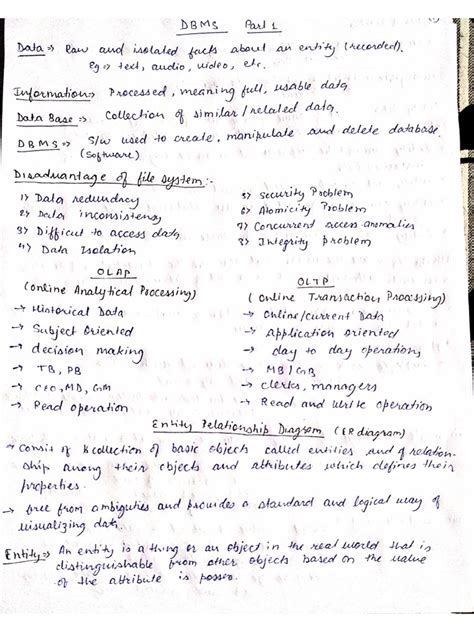 DBMS Part 1
Data => Raw and isolated facts about an entity (recorded).
Eg => text, audio, video, etc.
Information => Processed, meaning full, usable data
Data Base => Collection of similar/related data.
DBMS => S/w used to create, manipulate and delete database.
(Software)
Disadvantage of file system:-
1) Data redundancy
2) Data inconsistency
3) Difficult to access data
4) Data Isolation
5) Security Problem
6) Atomicity Problem
7) Concurrent access anomalies
8) Integrity problem
OLAP
(Online Analytical Processing)
→ Historical Data
→ Subject Oriented
→ decision making
→ TB, PB
→ CEO, MD, GM
→ Read operation
OLTP
(Online Transaction Processing)
→ Online/current Data
→ Application oriented
→ day to day operations
→ MB/GB
→ clerks, managers
→ Read and write operation
Entity Relationship Diagram (ER diagram)
→ consist of collection of basic objects called entities and of relation-
ship among their objects and attributes which defines their
properties.
→ free from ambiguities and provides a standard and logical way of
visualizing data.
Entity => An entity is a thing or an object in the real world that is
distinguishable from other objects based on the value
of the attribute is posses.